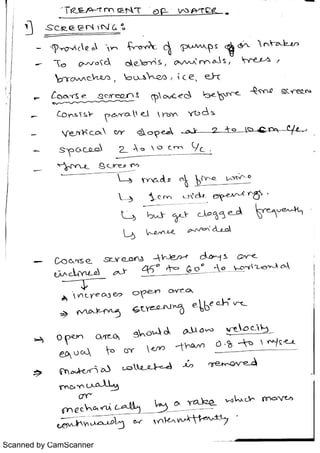 TREATMENT OF WATER.
1) SCREENING:
- Provided in front of pumps or on Intakes
- To avoid debris, animals, trees,
branches, bushes, ice, etc
- Coarse screens placed before fine screens
- Consist parallel Iron rods
- Vertical or sloped at 2 to 10 cm c/c.
- Spaced 2 to 10 cm c/c.
- Fine Screen
↳ made of fine wire
↳ 1cm wide openings.
↳ but get clogged frequently
↳ hence avoided
- Coarse screens these days are
inclined at 45° to 60° to horizontal
↓
* increases open area
⇒ making screening effective
→ Open area should allow velocity
equal to or less than 0.8 to 1 m/sec
⇒ Material collected is removed
manually
or
mechanically by a rake which moves
continuously or intermittently.
Scanned by CamScanner